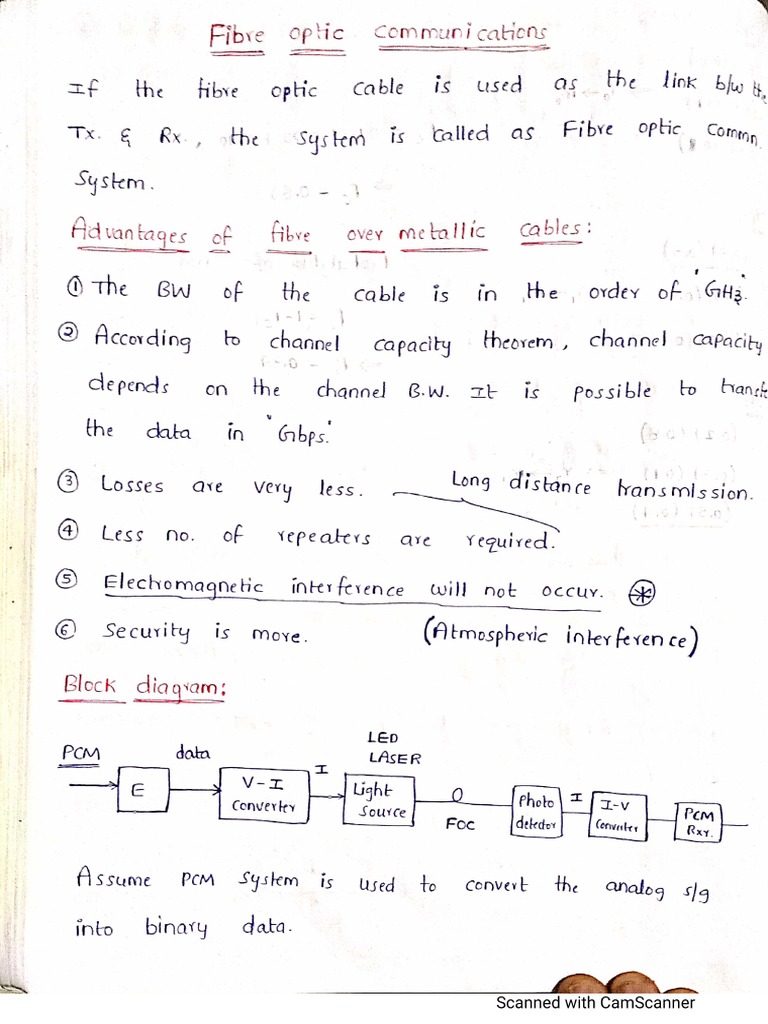 Fibre optic communications
If the fibre optic cable is used as the link b/w the
Tx. & Rx., the system is called as Fibre optic Commn.
System.
Advantages of fibre over metallic cables:
① The BW of the cable is in the order of 'GHz'.
② According to channel capacity theorem, channel capacity
depends on the channel B.W. It is possible to
the data in 'Gbps'.
③ Losses are very less. Long distance transmission.
④ Less no. of repeaters are required.
⑤ Electromagnetic interference will not occur. ⊛
⑥ Security is more. (Atmospheric interference)
Block diagram:
LED
LASER
PCM data I
E
V-I
Converter
Light
Source
FOC
Photo
detector
I
I-V
Converter
PCM
Rxr.
Assume PCM system is used to convert the analog s/g
into binary data.
Scanned with CamScanner